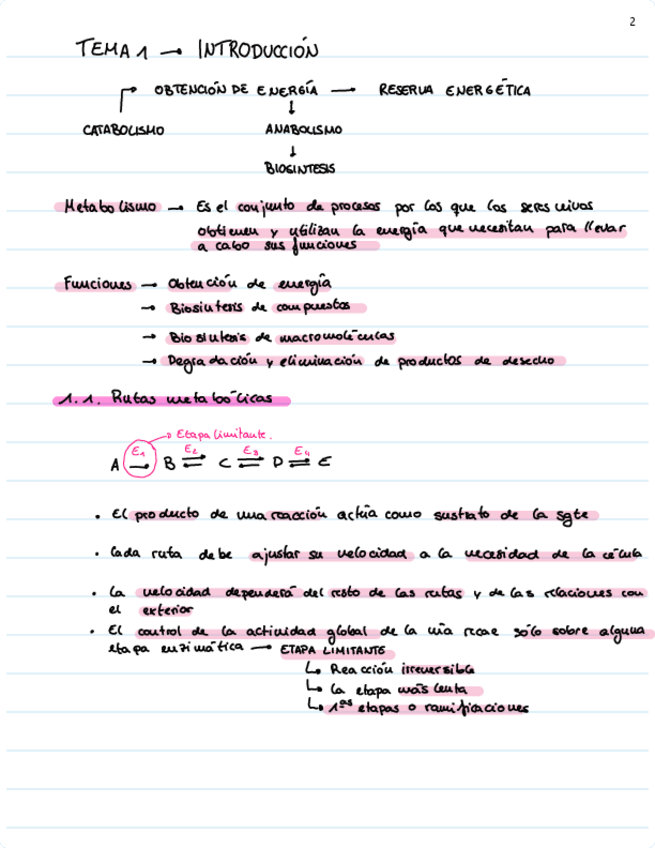 2
TEMA 1 → INTRODUCCIÓN
OBTENCIÓN DE ENERGÍA — RESERVA ENERGÉTICA
↓
CATABOLISMO ANABOLISMO
↓
BIOSINTESIS
Metabolismo → Es el conjunto de procesos por los que los seres vivos
obtienen y utilizan la energía que necesitan para llevar
a cabo sus funciones
Funciones → Obtención de energía
→ Biosintesis de compuestos
→ Biosintesis de macromoléculas
→ Degradación y eliminación de productos de desecho
1.1. Rutas metabólicas
→ Etapa limitante.
E₁ E₂ E₃ E₄
A → B ⇌ C ⇌ D ⇌ E
• El producto de una reacción actúa como sustrato de la sgte
• Cada ruta debe ajustar su velocidad a la necesidad de la célula
• La velocidad dependerá del resto de las rutas y de las relaciones con
el exterior
• El control de la actividad global de la vía recae sólo sobre alguna
etapa enzimática → ETAPA LIMITANTE
↳ Reacción irreversible
↳ La etapa más lenta
↳ 1ᵃˢ etapas o ramificaciones